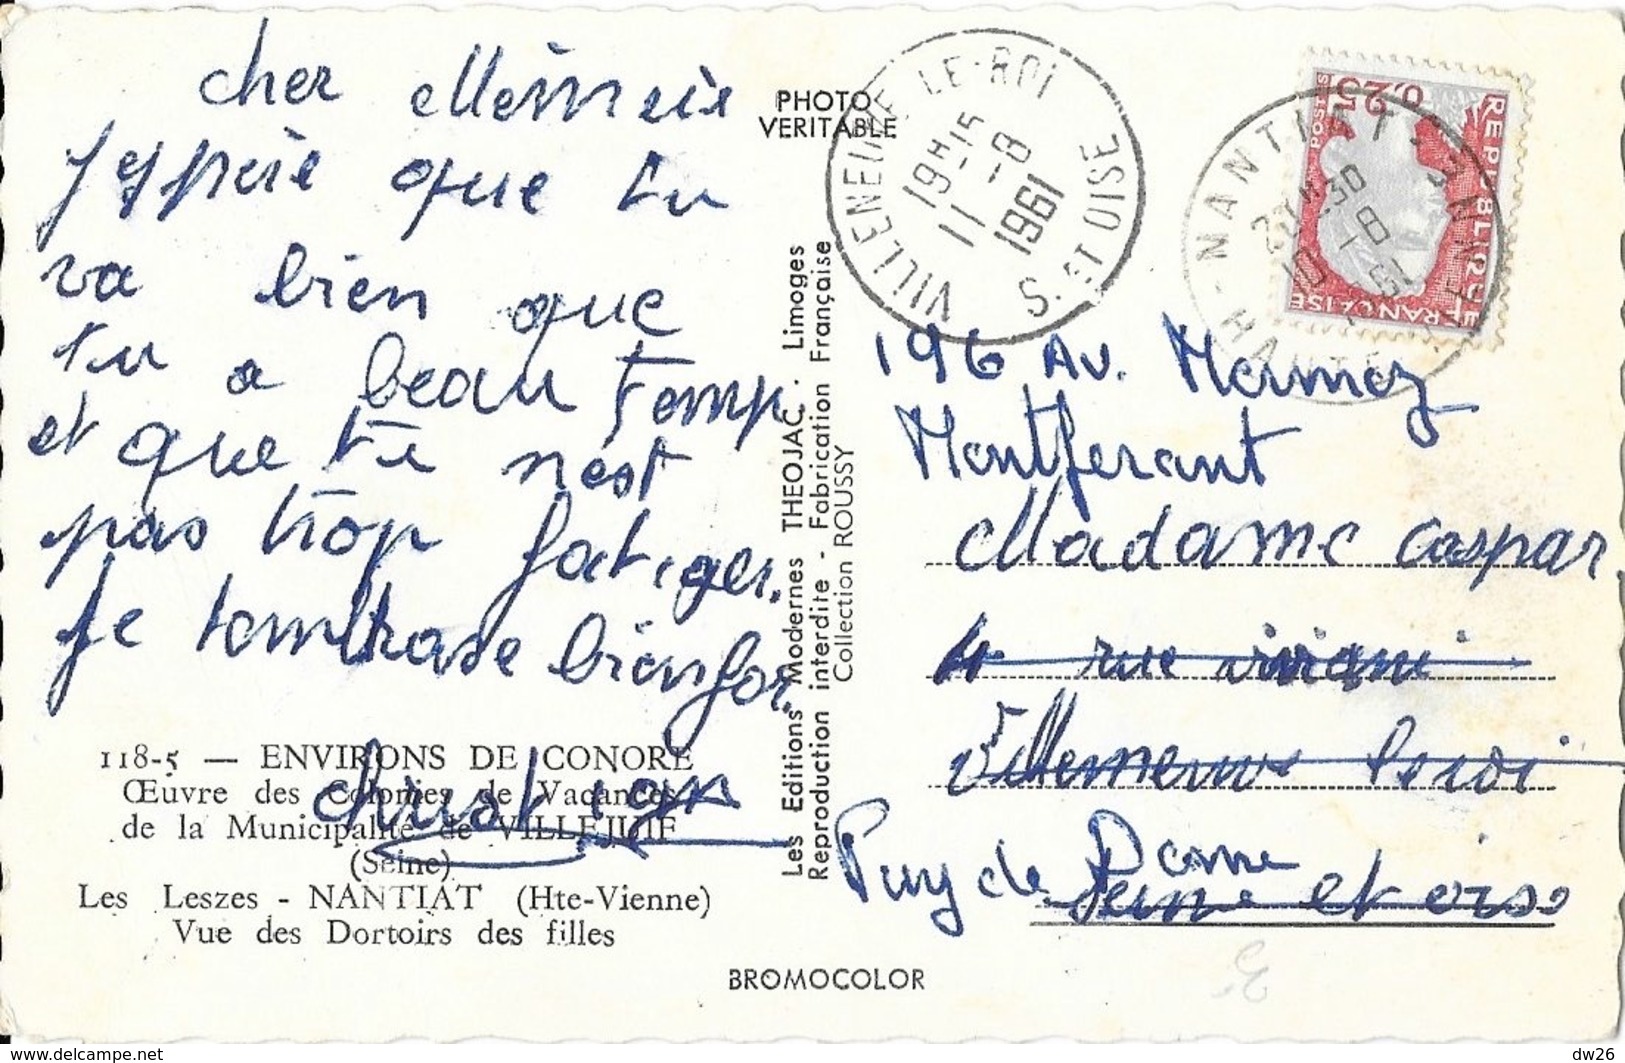 cher Mémeie
J'espère que tu
va bien que
tu a beau temp
et que tu n'est
pas trop fatiger.
Je tembrase bienfor.
Christian
118-5 — ENVIRONS DE CONORE
Œuvre des Colonies de Vacances
de la Municipalité de VILLEJUIF
(Seine)
Les Leszes - NANTIAT (Hte-Vienne)
Vue des Dortoirs des filles
PHOTO
VERITABLE
Les Editions Modernes THEOJAC. Limoges
Reproduction interdite - Fabrication Française
Collection ROUSSY
BROMOCOLOR
VILLENEUVE-LE-ROI
19H15
11-8
1961
S. ET OISE
NANTIAT
10-8
HAUTE VIENNE
0,25
POSTES
REPUBLIQUE
FRANÇAISE
196 Av. Mermoz
Montferant
Madame Caspar
4 rue viviani
Villemeuve leroi
Puy de Dome
Seine et oise
www.delcampe.net
dw26